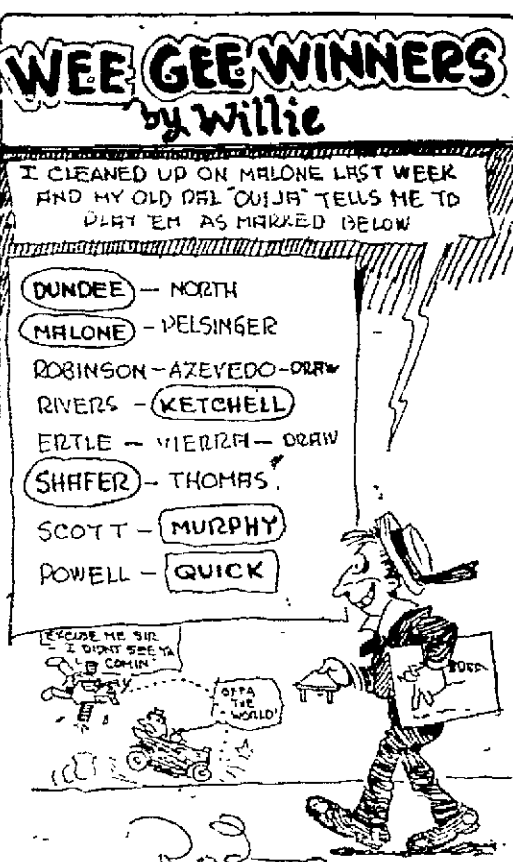 WEE GEE WINNERS
by Willie
I CLEANED UP ON MALONE LAST WEEK
AND MY OLD PAL "OUIJA" TELLS ME TO
PLAY 'EM AS MARKED BELOW
DUNDEE — NORTH
MALONE - PELSINGER
ROBINSON - AZEVEDO - DRAW
RIVERS - KETCHELL
ERTLE — VIERRA — DRAW
SHAFER - THOMAS
SCOTT - MURPHY
POWELL - QUICK
EXCUSE ME SIR
I DIDNT SEE YA
COMIN'
OFFA
THE
WORLD!